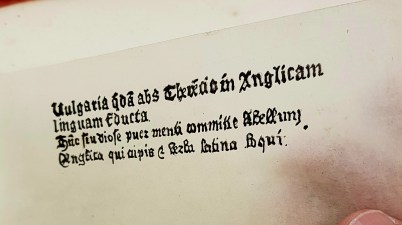 Vulgaria q̄dā abs Therēcio in Anglicam
linguam traducta
Hūc studiose puer menti committe libellum
Anglica qui cupis & verba latina loqui.